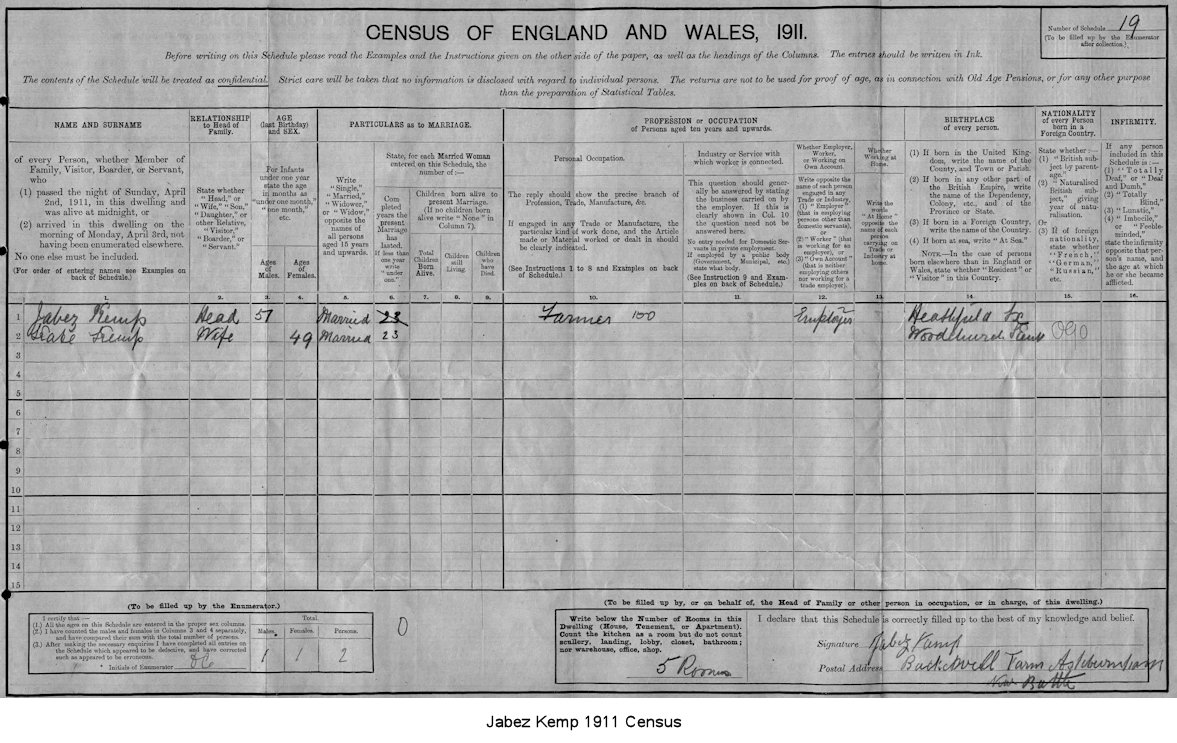 CENSUS OF ENGLAND AND WALES, 1911.
Number of Schedule 19
(To be filled up by the Enumerator
after collection.)
Before writing on this Schedule please read the Examples and the Instructions given on the other side of the paper, as well as the headings of the Columns. The entries should be written in Ink.
The contents of the Schedule will be treated as confidential. Strict care will be taken that no information is disclosed with regard to individual persons. The returns are not to be used for proof of age, as in connection with Old Age Pensions, or for any other purpose
than the preparation of Statistical Tables.
NAME AND SURNAME
of every Person, whether Member of
Family, Visitor, Boarder, or Servant,
who
(1) passed the night of Sunday, April
2nd, 1911, in this dwelling and
was alive at midnight, or
(2) arrived in this dwelling on the
morning of Monday, April 3rd, not
having been enumerated elsewhere.
No one else must be included.
(For order of entering names see Examples on
back of Schedule.)
RELATIONSHIP
to Head of
Family.
State whether
"Head," or
"Wife," "Son,"
"Daughter," or
other Relative,
"Visitor,"
"Boarder," or
"Servant."
AGE
(last Birthday)
and SEX.
For Infants
under one year
state the age
in months as
"under one month,"
"one month,"
etc.
Ages
of
Males.
Ages
of
Females.
PARTICULARS as to MARRIAGE.
Write
"Single,"
"Married,"
"Widower,"
or "Widow,"
opposite the
names of
all persons
aged 15 years
and upwards.
State, for each Married Woman
entered on this Schedule, the
number of :—
Com
pleted
years the
present
Marriage
has
lasted.
If less than
one year
write
"under
one."
Children born alive to
present Marriage.
(If no children born
alive write "None" in
Column 7).
Total
Children
Born
Alive.
Children
still
Living.
Children
who
have
Died.
PROFESSION or OCCUPATION
of Persons aged ten years and upwards.
Personal Occupation.
The reply should show the precise branch of
Profession, Trade, Manufacture, &c.
If engaged in any Trade or Manufacture, the
particular kind of work done, and the Article
made or Material worked or dealt in should
be clearly indicated.
(See Instructions 1 to 8 and Examples on back
of Schedule.)
Industry or Service with
which worker is connected.
This question should gener-
ally be answered by stating
the business carried on by
the employer. If this is
clearly shown in Col. 10
the question need not be
answered here.
No entry needed for Domestic Ser-
vants in private employment.
If employed by a public body
(Government, Municipal, etc.)
state what body.
(See Instruction 9 and Exam-
ples on back of Schedule.)
Whether Employer,
Worker,
or Working on
Own Account.
Write opposite the
name of each person
engaged in any
Trade or Industry,
(1) "Employer"
(that is employing
persons other than
domestic servants),
or
(2) "Worker" (that
is working for an
employer), or
(3) "Own Account"
(that is neither
employing others
nor working for a
trade employer).
Whether
Working at
Home.
Write the
words
"At Home"
opposite the
name of each
person
carrying on
Trade or
Industry at
home.
BIRTHPLACE
of every person.
(1) If born in the United King-
dom, write the name of the
County, and Town or Parish.
(2) If born in any other part of
the British Empire, write
the name of the Dependency,
Colony, etc., and of the
Province or State.
(3) If born in a Foreign Country,
write the name of the Country.
(4) If born at sea, write "At Sea."
NOTE.—In the case of persons
born elsewhere than in England or
Wales, state whether "Resident" or
"Visitor" in this Country.
NATIONALITY
of every Person
born in a
Foreign Country.
State whether :—
(1) "British sub-
ject by parent-
age."
(2) "Naturalised
British sub-
ject," giving
year of natu-
ralisation.
Or
(3) If of foreign
nationality,
state whether
"French,"
"German,"
"Russian,"
etc.
INFIRMITY.
If any person
included in this
Schedule is :—
(1) "Totally
Deaf," or "Deaf
and Dumb,"
(2) "Totally
Blind,"
(3) "Lunatic,"
(4) "Imbecile,"
or "Feeble-
minded,"
state the infirmity
opposite that per-
son's name, and
the age at which
he or she became
afflicted.
1. 2. 3. 4. 5. 6. 7. 8. 9. 10. 11. 12. 13. 14. 15. 16.
1 Jabez Kemp Head 57 Married 23 Farmer 100 Employer Heathfield Sx
2 Kate Kemp Wife 49 Married 23 Woodchurch Kent
3
4
5
6
7
8
9
10
11
12
13
14
15
(To be filled up by the Enumerator.)
I certify that :—
(1.) All the ages on this Schedule are entered in the proper sex columns.
(2.) I have counted the males and females in Columns 3 and 4 separately,
and have compared their sum with the total number of persons.
(3.) After making the necessary enquiries I have completed all entries on
the Schedule which appeared to be defective, and have corrected
such as appeared to be erroneous.
Initials of Enumerator
Total.
Males. Females. Persons.
1 1 2
0
(To be filled up by, or on behalf of, the Head of Family or other person in occupation, or in charge, of this dwelling.)
Write below the Number of Rooms in this
Dwelling (House, Tenement, or Apartment).
Count the kitchen as a room but do not count
scullery, landing, lobby, closet, bathroom ;
nor warehouse, office, shop.
5 Rooms
I declare that this Schedule is correctly filled up to the best of my knowledge and belief.
Signature Jabez Kemp
Postal Address Farm Ashburnham
Battle
Jabez Kemp 1911 Census